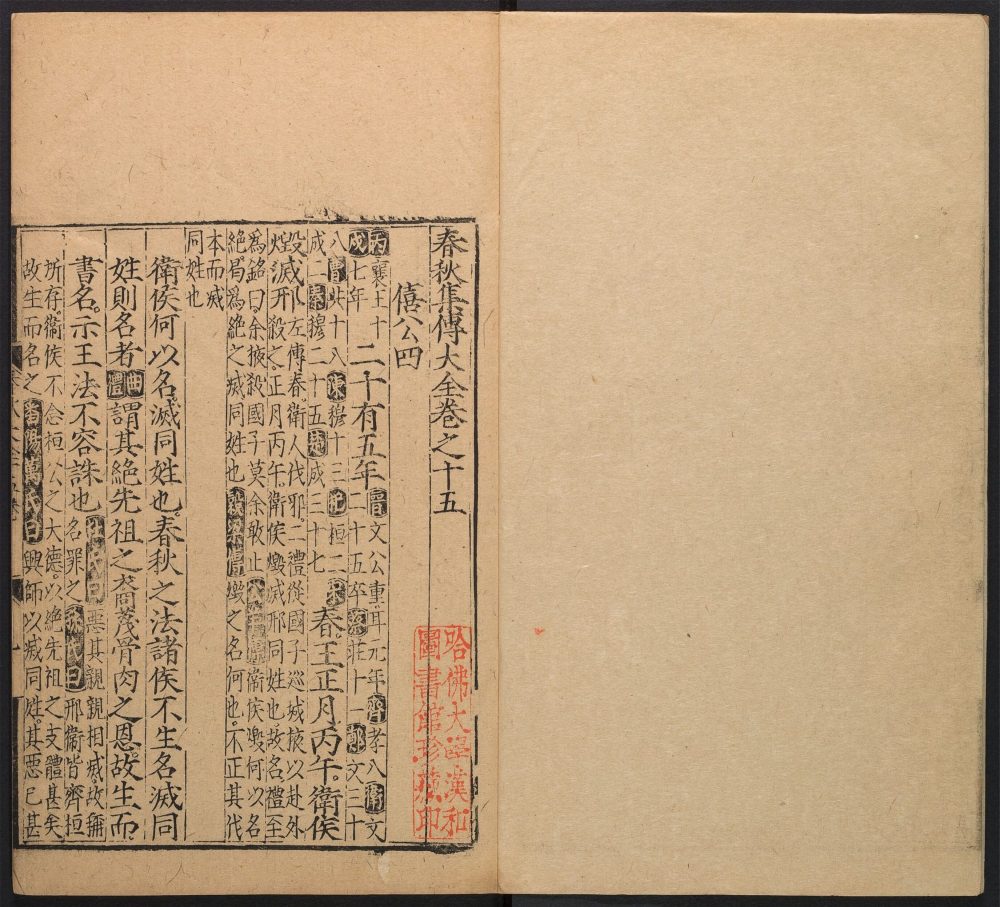 春秋集傳大全卷之十五
哈佛大學漢和
圖書館珍藏印
僖公四
丙襄王十
戌七年
二十有五年
晉文公重耳元年齊孝八衛文
二十五卒蔡莊十一鄭文三十
八曹共十八陳穆十三杞桓二宋
成二秦穆二十五楚成三十七
春王正月丙午衛侯
燬滅邢
左傳春衛人伐邢二禮從國子巡城掖以赴外
殺之正月丙午衛侯燬滅邢同姓也故名禮至
為銘曰余掖殺國子莫余敢止公羊傳衛侯燬何以名
絕曷爲絕之滅同姓也穀梁傳燬之名何也不正其伐
本而滅
同姓也
衛侯何以名滅同姓也春秋之法諸侯不生名滅同
姓則名者曲禮謂其絕先祖之裔蔑骨肉之恩故生而
書名示王法不容誅也
杜氏曰惡其親親相滅故稱
名罪之孫氏曰邢衛皆齊桓
所存衛侯不念桓公之大德以絕先祖之支體甚矣
故生而名之番陽萬氏曰興師以滅同姓其惡已甚